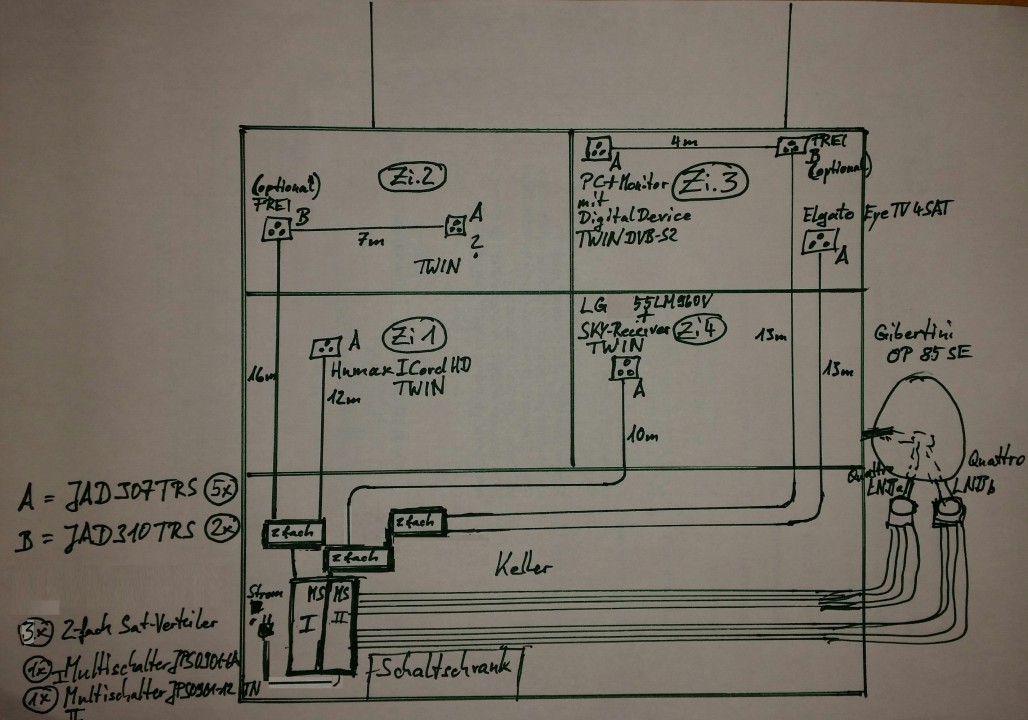 Zi.2
(optional)
FREI
B
7m
A
?
TWIN
4m
A
FREI
B
(optional)
PC+Monitor
mit
Digital Device
TWIN DVB-S2
Zi.3
Elgato EyeTV 4SAT
A
Zi 1
A
Humax ICord HD
TWIN
16m
12m
LG 55LM960V
+
SKY-Receiver
TWIN
Zi 4
A
10m
13m
13m
Gibertini
OP 85 SE
Quattro
LNB a
Quattro
LNB b
A = JAD307TRS 5x
B = JAD310TRS 2x
2fach
2fach
2fach
Keller
Strom
MS
I
MS
II
3x 2-fach Sat-Verteiler
1x I Multischalter
1x Multischalter JPS0901-12 TN
II
Schaltschrank